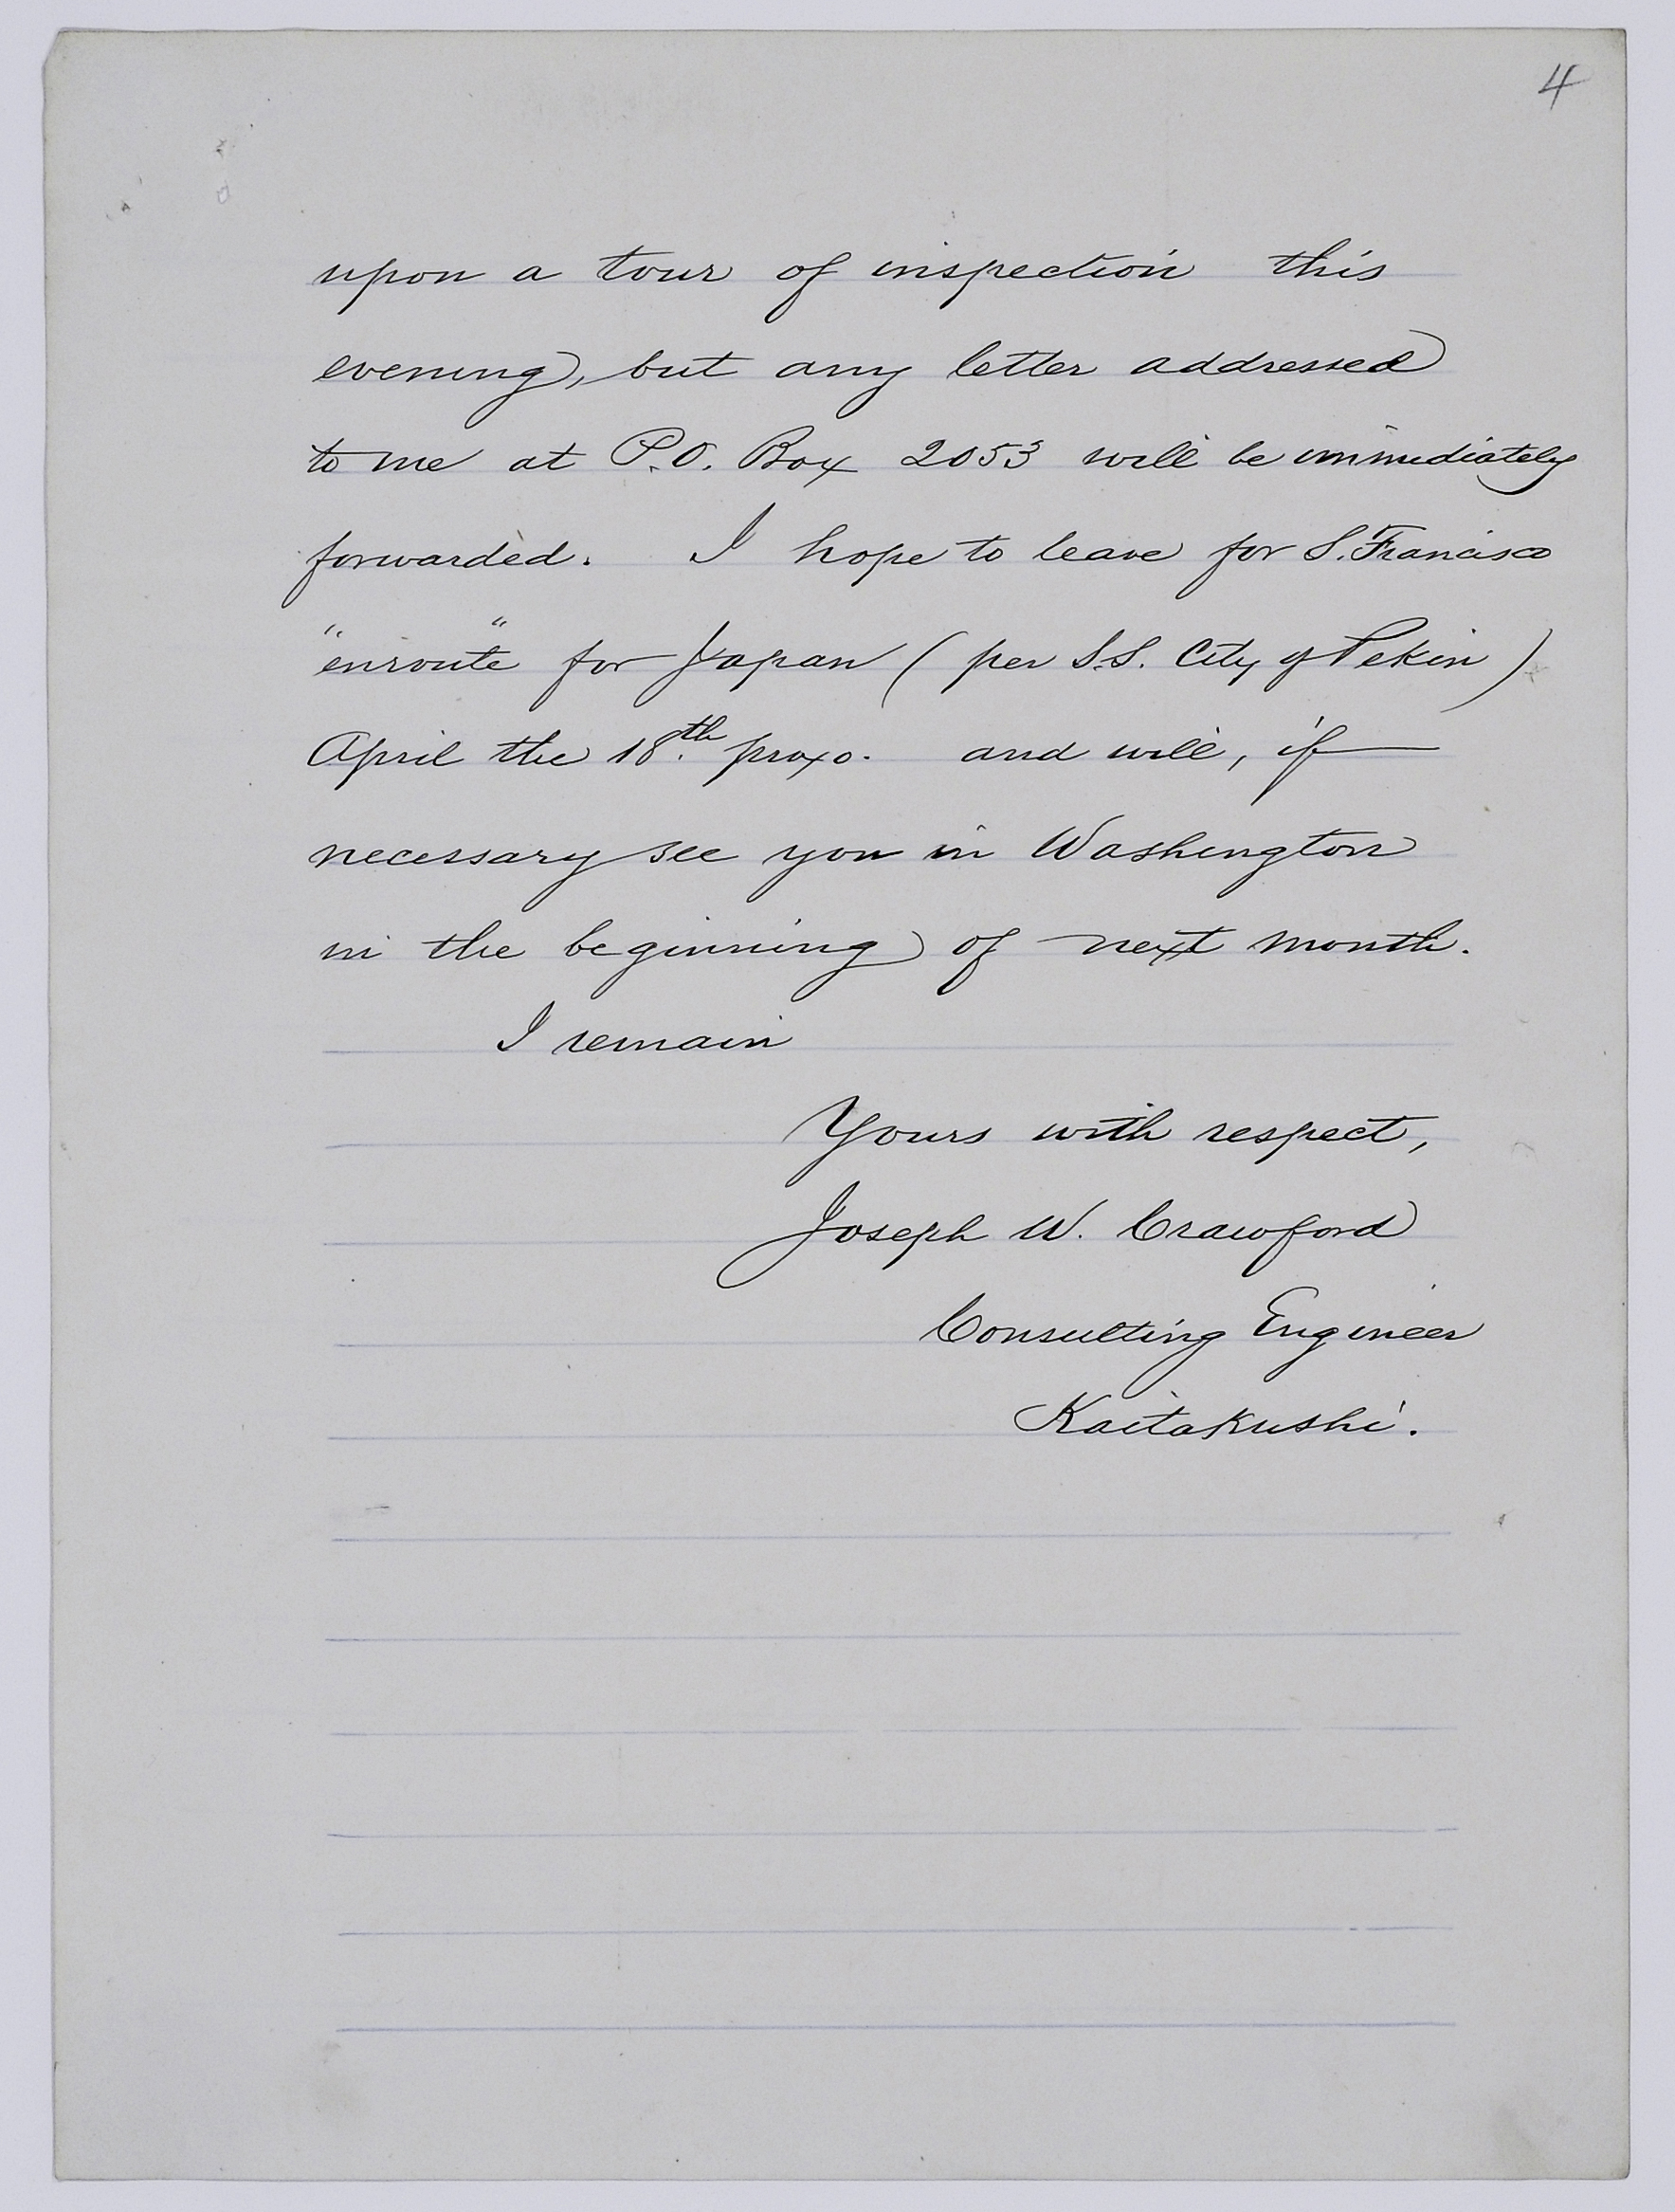 4
upon a tour of inspection this
evening, but any letter addressed
to me at P.O. Box 2053 will be immediately
forwarded. I hope to leave for S. Francisco
"enroute" for Japan (per S.S. City of Pekin)
April the 18th. proxo. and will, if
necessary see you in Washington
in the beginning of next month.
I remain
Yours with respect,
Joseph W. Crawford
Consulting Engineer
Kaitakushi.